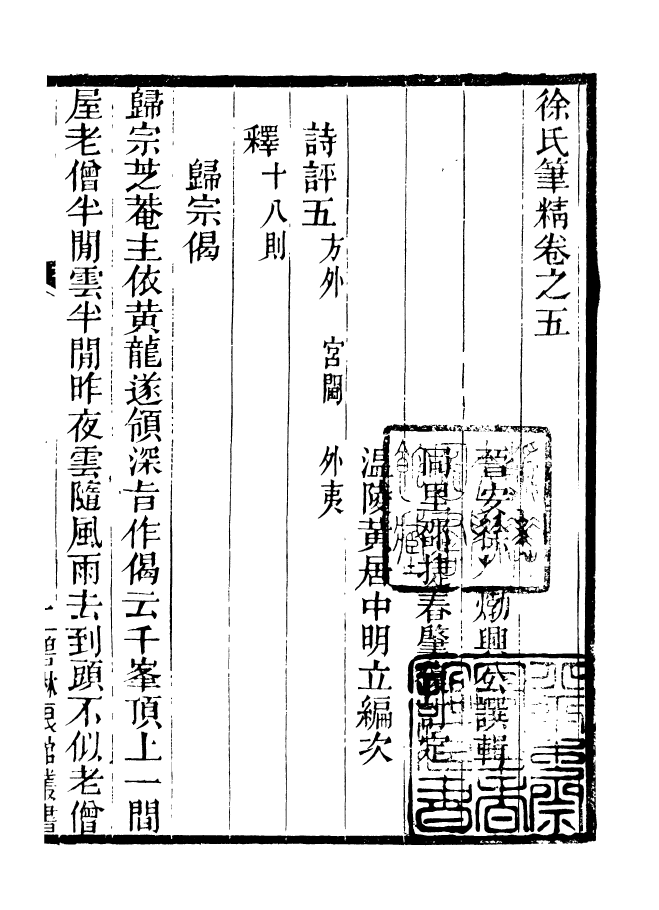 徐氏筆精卷之五
晉安徐𤊹興公譔輯
同里邵捷春肇復訂定
溫陵黃居中明立編次
詩評五 方外 宮閨 外夷
釋 十八則
歸宗偈
歸宗芝菴主依黃龍遂領深旨作偈云千峯頂上一間
屋老僧半閒雲半閒昨夜雲隨風雨去到頭不似老僧
碧琳琅館叢書